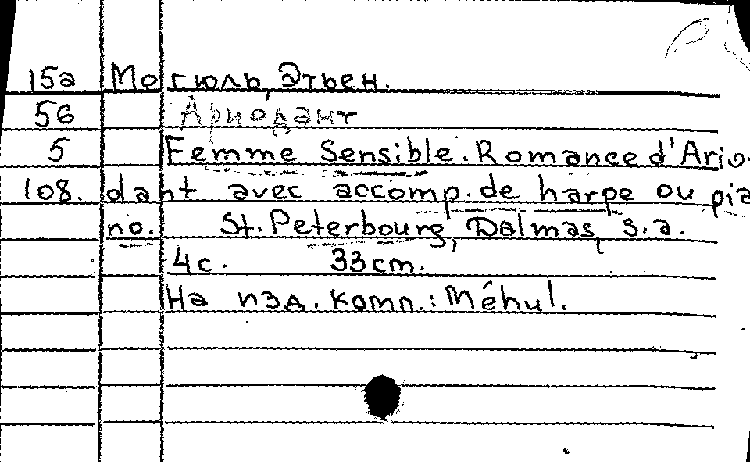 15а Мегюль, Этьен.
5б Ариодант
5 Femme Sensible. Romance d'Ario-
108. dant avec accomp. de harpe ou pia
no. St. Peterbourg, Dalmas, s.a.
4с. 33cm.
На изд. комп.: Méhul.